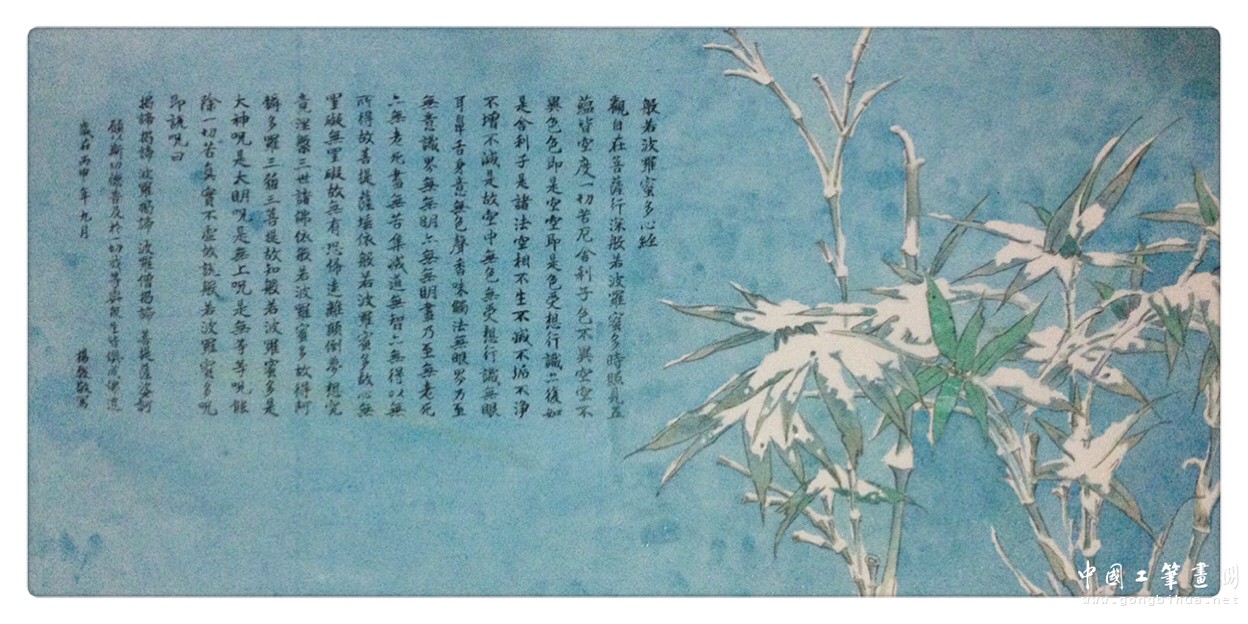 般若波羅蜜多心經
觀自在菩薩行深般若波羅蜜多時照見五
蘊皆空度一切苦厄舍利子色不異空空不
異色色即是空空即是色受想行識亦復如
是舍利子是諸法空相不生不滅不垢不净
不增不減是故空中無色無受想行識無眼
耳鼻舌身意無色聲香味觸法無眼界乃至
無意識界無無明亦無無明盡乃至無老死
亦無老死盡無苦集滅道無智亦無得以無
所得故菩提薩埵依般若波羅蜜多故心無
罣礙無罣礙故無有恐怖遠離顛倒夢想究
竟涅槃三世諸佛依般若波羅蜜多故得阿
耨多羅三藐三菩提故知般若波羅蜜多是
大神呪是大明呪是無上呪是無等等呪能
除一切苦真實不虛故說般若波羅蜜多呪
即說呪曰
揭諦揭諦 波羅揭諦 波羅僧揭諦 菩提薩婆訶
願以斯功德普及於一切我等與眾生皆俱成佛道
歲在丙申年九月 敬寫
中國工筆畫網
www.gongbihua.net